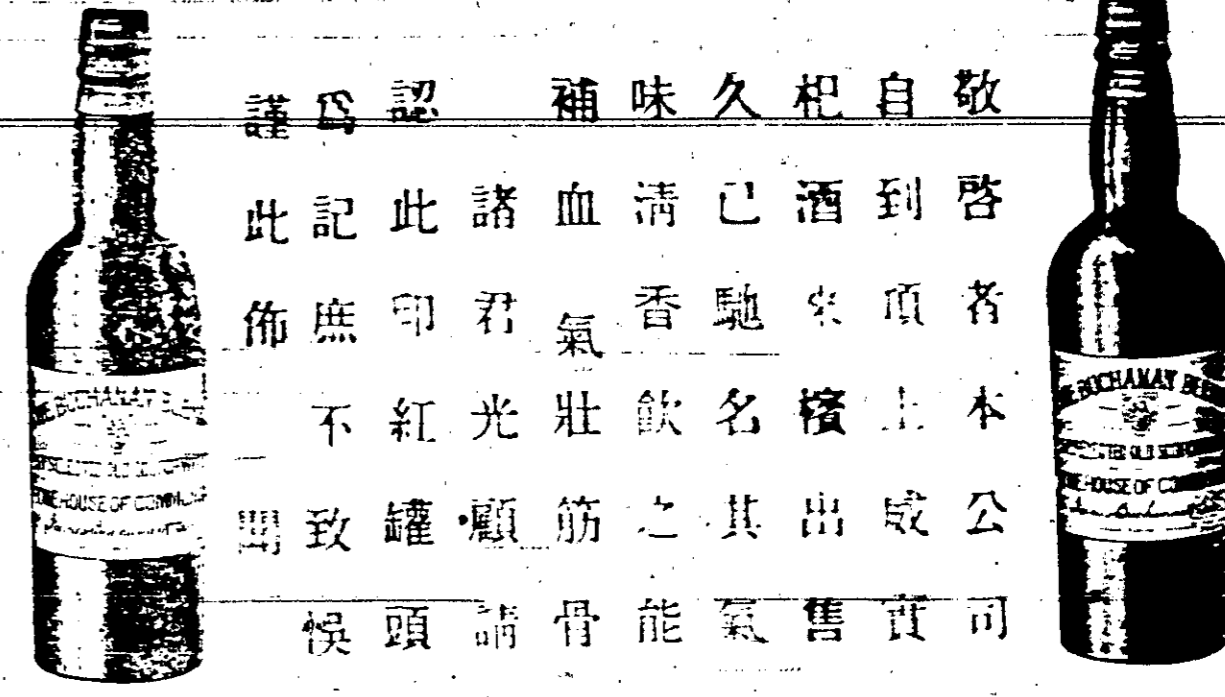 敬啓者本公司
自到頂上威貢
杞酒來檳出售
久已馳名其氣
味淸香飮之能
補血氣壯筋骨
諸君光顧請
認此印紅罐頭
爲記庶不致悞
謹此佈聞
THE BUCHANAN BLEND
SELECTED OLD SCOTCH
HOUSE OF COMMONS
THE BUCHANAN BLEND
SELECTED OLD SCOTCH
THE HOUSE OF COMMONS